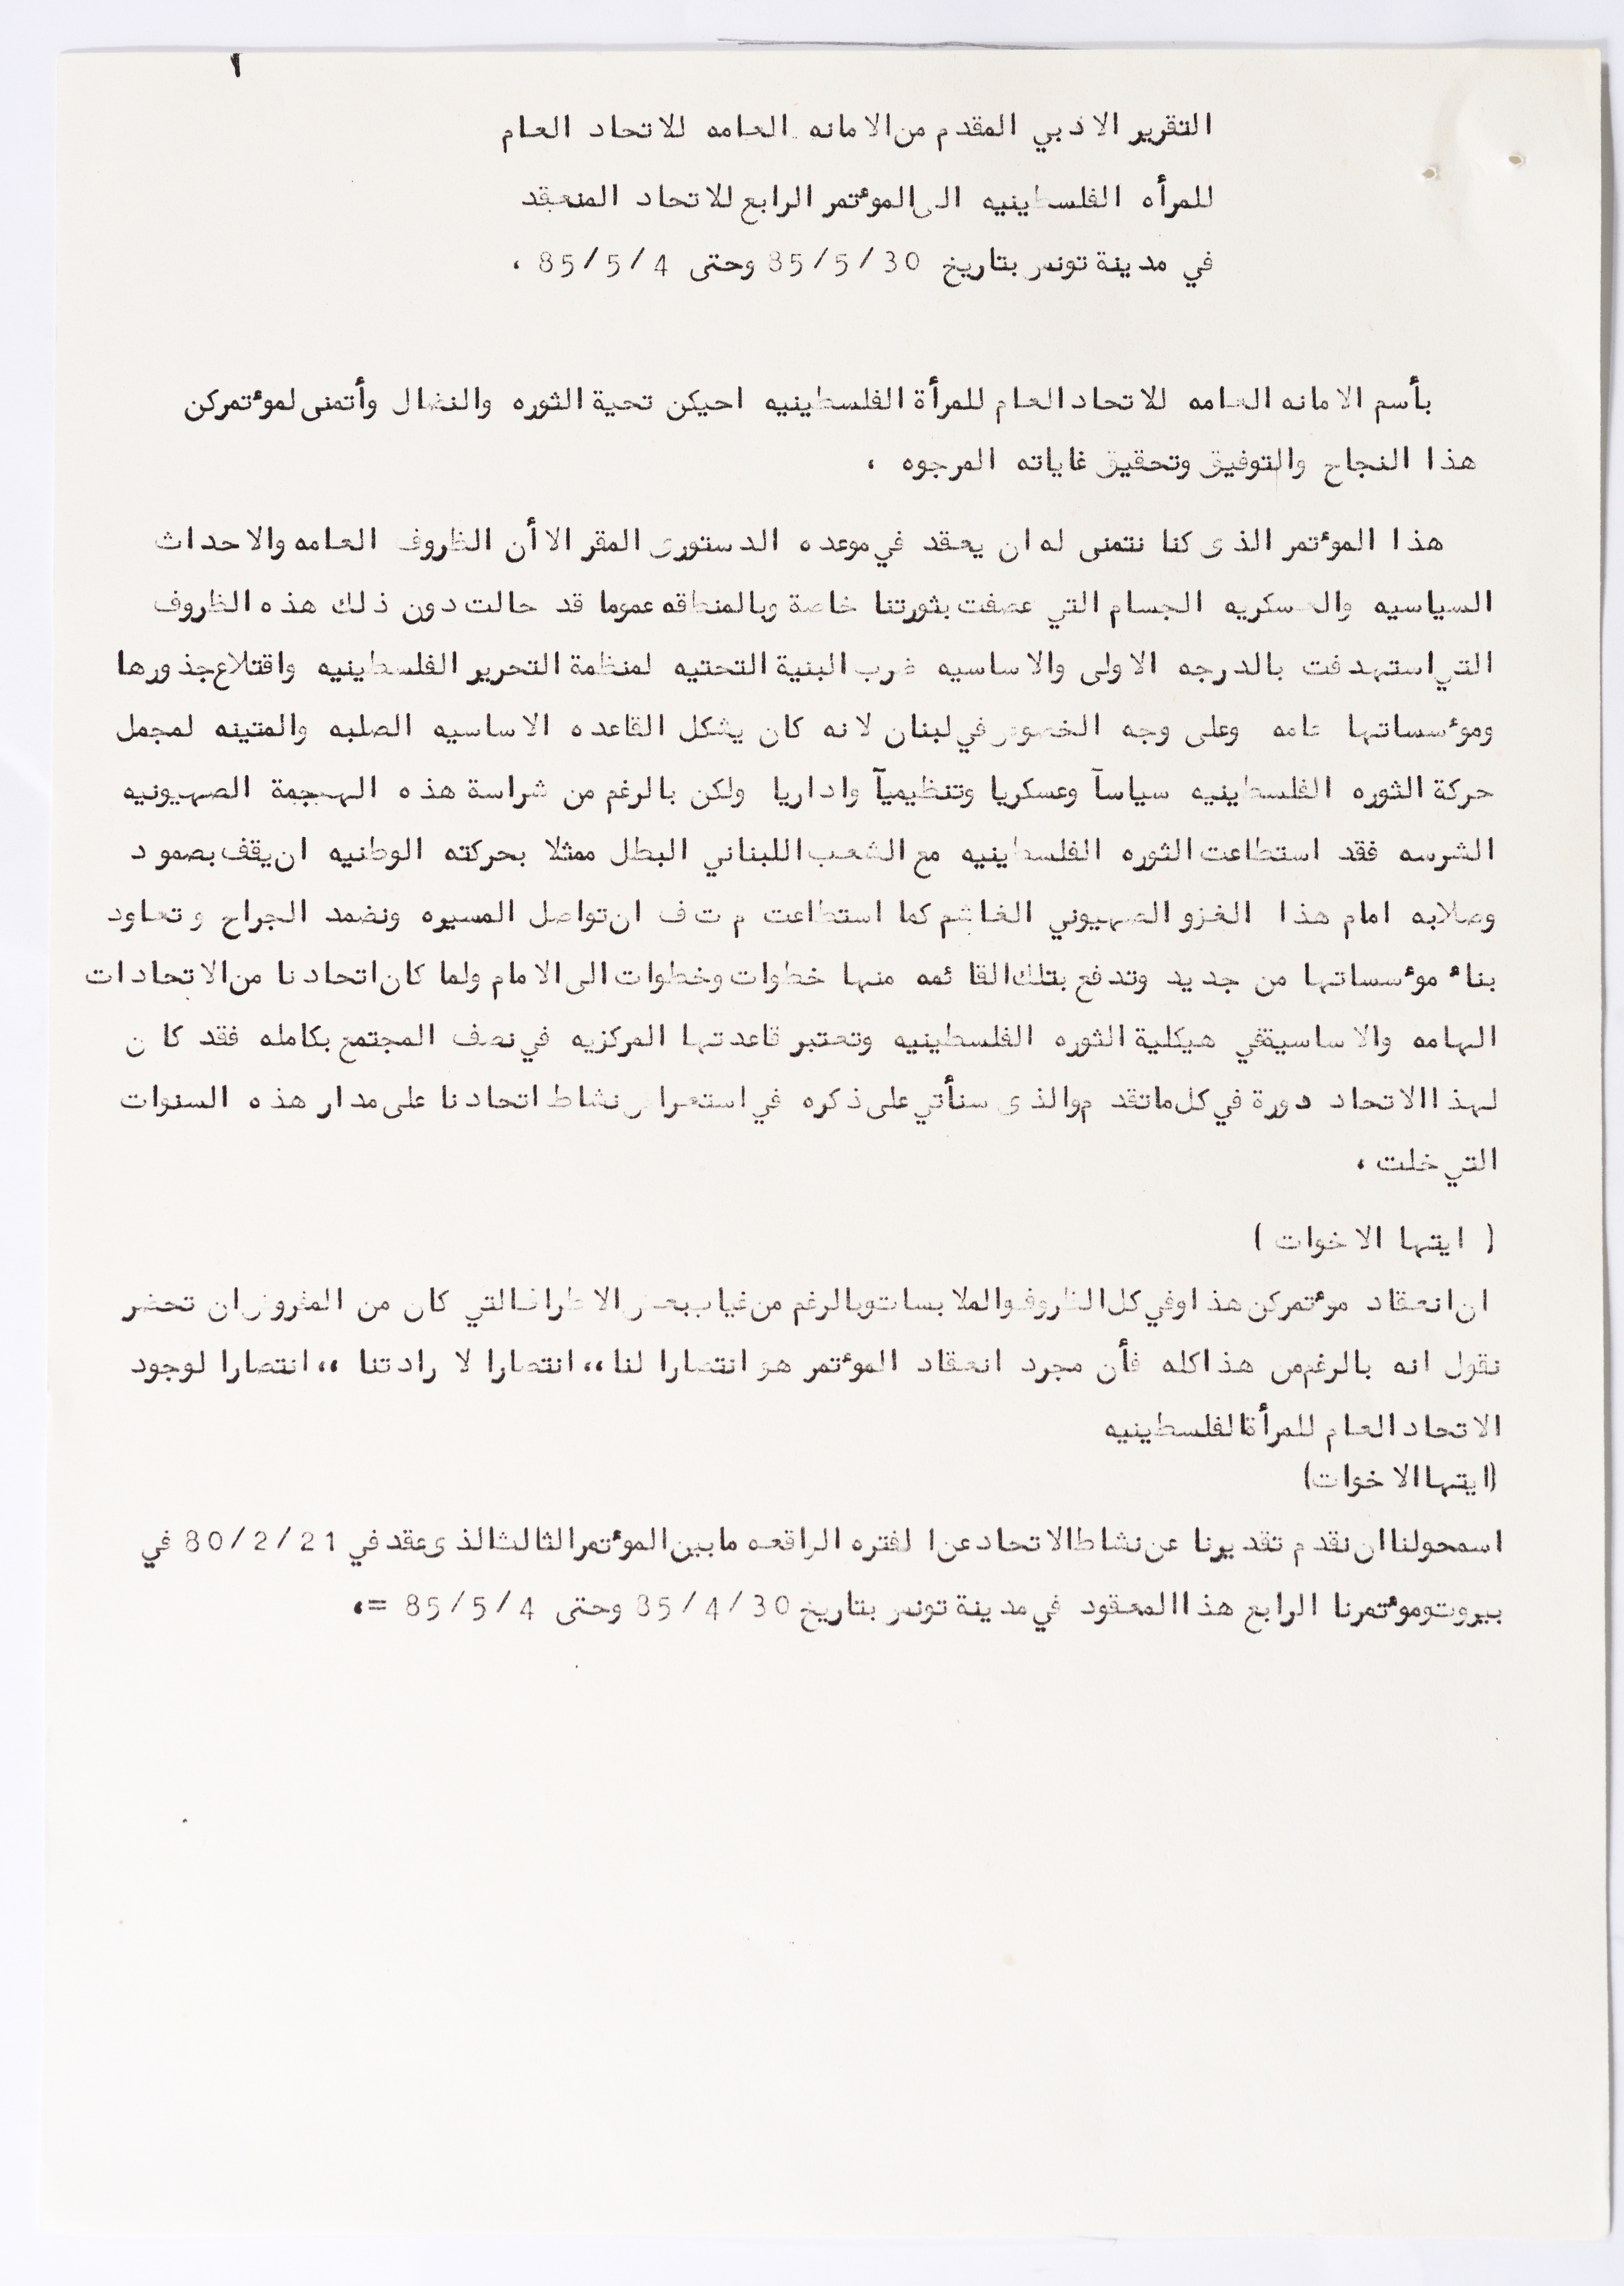 ١
التقرير الادبي المقدم من الامانه العامه للاتحاد العام
للمرأه الفلسطينيه الى الموءتمر الرابع للاتحاد المنعقد
في مدينة تونس بتاريخ 85/5/30 وحتى 85/5/4 ،
بأسم الامانه العامه للاتحاد العام للمرأة الفلسطينيه احيكن تحية الثوره والنضال وأتمنى لموءتمركن
هذا النجاح والتوفيق وتحقيق غاياته المرجوه ،
هذا الموءتمر الذى كنا نتمنى له ان يعقد في موعده الدستورى المقر الا أن الظروف العامه والاحداث
السياسيه والعسكريه الجسام التي عصفت بثورتنا خاصة وبالمنطقه عموما قد حالت دون ذلك هذه الظروف
التي استهدفت بالدرجه الاولى والاساسيه ضرب البنية التحتيه لمنظمة التحرير الفلسطينيه واقتلاع جذورها
وموءسساتها عامه وعلى وجه الخصوص في لبنان لانه كان يشكل القاعده الاساسيه الصلبه والمتينه لمجمل
حركة الثوره الفلسطينيه سياسآ وعسكريا وتنظيميآ واداريا ولكن بالرغم من شراسة هذه الهجمة الصهيونيه
الشرسه فقد استطاعت الثوره الفلسطينيه مع الشعب اللبناني البطل ممثلا بحركته الوطنيه ان يقف بصمود
وصلابه امام هذا الغزو الصهيوني الغاشم كما استطاعت م ت ف ان تواصل المسيره ونضمد الجراح وتعاود
بناء موءسساتها من جديد وتدفع بتلك القائمه منها خطوات وخطوات الى الامام ولما كان اتحادنا من الاتحادات
الهامه والاساسيةفي هيكلية الثوره الفلسطينيه وتعتبر قاعدتها المركزيه في نصف المجتمع بكامله فقد كان
لهذا الاتحاد دورة في كل ماتقدم والذى سنأتي على ذكره في استعراض نشاط اتحادنا على مدار هذه السنوات
التي خلت ،
( ايتها الاخوات )
ان انعقاد مرءتمركن هذا وفي كل الظروف والملابسات وبالرغم من غياب بعض الاطراف التي كان من المفروض ان تحضر
نقول انه بالرغم من هذا كله فأن مجرد انعقاد الموءتمر هو انتصارا لنا ،، انتصارا لارادتنا ،، انتصارا لوجود
الاتحاد العام للمرأةالفلسطينيه
(ايتها الاخوات)
اسمحولنا ان نقدم تقديرنا عن نشاط الاتحاد عن الفتره الراقعه مابين الموءتمر الثالث الذى عقد في 80/2/21 في
بيروت وموءتمرنا الرابع هذا المعقود في مدينة تونس بتاريخ 85/4/30 وحتى 85/5/4 =،